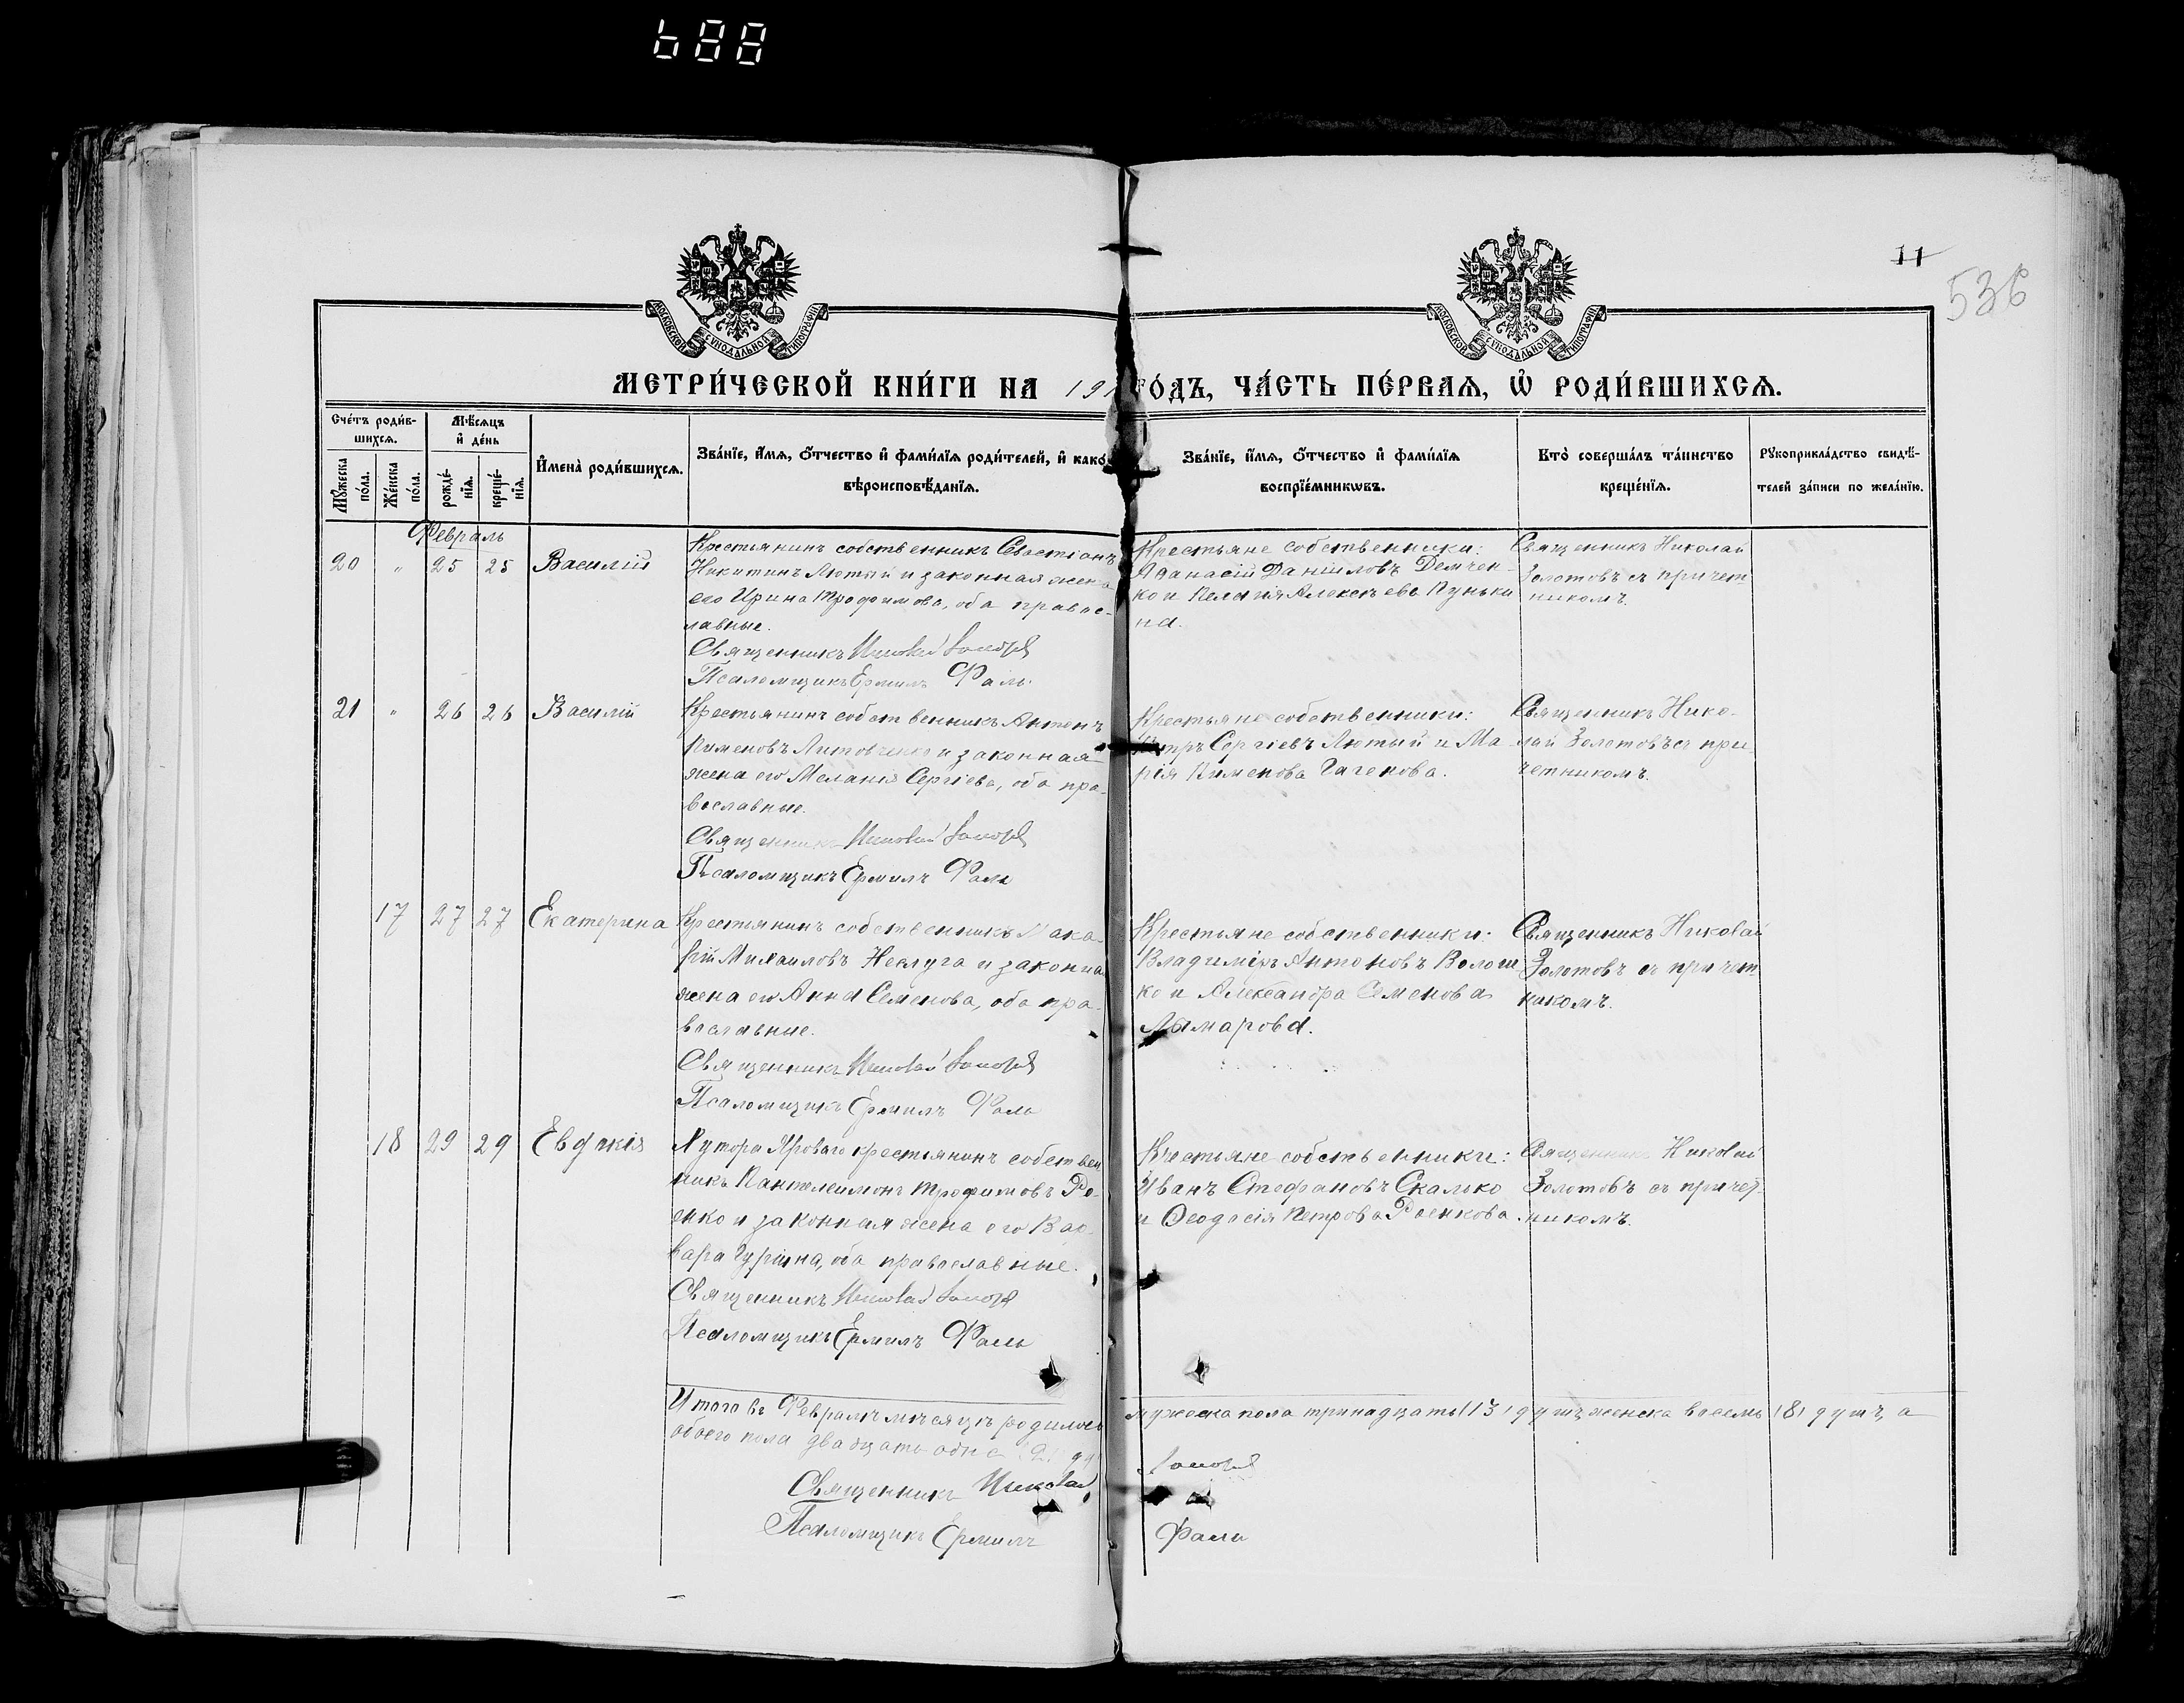 688
11
536
МОСКОВСКОЙ СѴНОДАЛЬНОЙ ТИПОГРАФІИ
МОСКОВСКОЙ СѴНОДАЛЬНОЙ ТИПОГРАФІИ
МЕТРИ́ЧЕСКОЙ КНИ́ГИ НА 191 ГО́ДЪ, ЧА́СТЬ ПЕ́РВАѦ, Ѽ РОДИ́ВШИХСѦ.
Сче́тъ роди́в-
шихсѧ.
Мꙋжеска по́ла.
Же́нска по́ла.
Мѣ́сѧцъ
и҆ де́нь
рожде́-
нїѧ.
креще́-
нїѧ.
И҆мена̀ роди́вшихсѧ.
Зва́нїе, и҆́мѧ, ѻ҆́тчество и҆ фами́лїѧ роди́телей, и҆ како́
вѣроисповѣ́данїѧ.
Зва́нїе, и҆́мѧ, ѻ҆́тчество и҆ фами́лїѧ
воспрїе́мникѡвъ.
Кто̀ соверша́лъ та́инство
креще́нїѧ.
Рꙋкоприкла́дство свидѣ́-
телей за́писи по жела́нїю.
Февраль
20 " 25 25 Василій
Крестьянинъ собственникъ Севастіанъ
Никитинъ Лютый и законная жена
его Ирина Трофимова, оба правос-
лавные.
Священникъ Николай Золотовъ
Псаломщикъ Ермилъ Фаль
Крестьяне собственники:
Аѳанасій Даніиловъ Демчен-
ко и Пелагія Алексѣева Пуньки
на.
Священникъ Николай
Золотовъ съ причет
никомъ.
21 " 26 26 Василій
Крестьянинъ собственникъ Антонъ
Пименовъ Литовченко и законная
жена его Меланія Сергіева, оба пра-
вославные.
Священникъ Николай Золотовъ
Псаломщикъ Ермилъ Фаль
Крестьяне собственники:
Петръ Сергіевъ Лютый и Ма-
рія Пименова Гагенова.
Священникъ Нико-
лай Золотовъ съ при-
четникомъ.
17 27 27 Екатерина
Крестьянинъ собственникъ Мака-
рій Михаиловъ Неслуга и законна
жена его Анна Семенова, оба пра-
вославные.
Священникъ Николай Золотовъ
Псаломщикъ Ермилъ Фаль
Крестьяне собственники:
Владиміръ Антоновъ Волош
ко и Александра Семенова
Лымарова.
Священникъ Николай
Золотовъ съ причет
никомъ.
18 29 29 Евдокія
Хутора Яроваго крестьянинъ собствен
никъ Пантелеимонъ Трофимовъ Ро-
енко и законная жена его Вар-
вара Гуріина, оба православные.
Священникъ Николай Золотовъ
Псаломщикъ Ермилъ Фаль
Крестьяне собственники:
Иванъ Стефановъ Скалько
и Ѳеодосія Петрова Роенкова.
Священникъ Николай
Золотовъ съ причет-
никомъ.
Итого въ Февралѣ мѣсяцѣ родилось мужеска пола тринадцать (13) душъ, женска восемь (8) душъ, а
обоего пола двадцать одна (21)
Священникъ Николай Золотовъ
Псаломщикъ Ермилъ Фаль